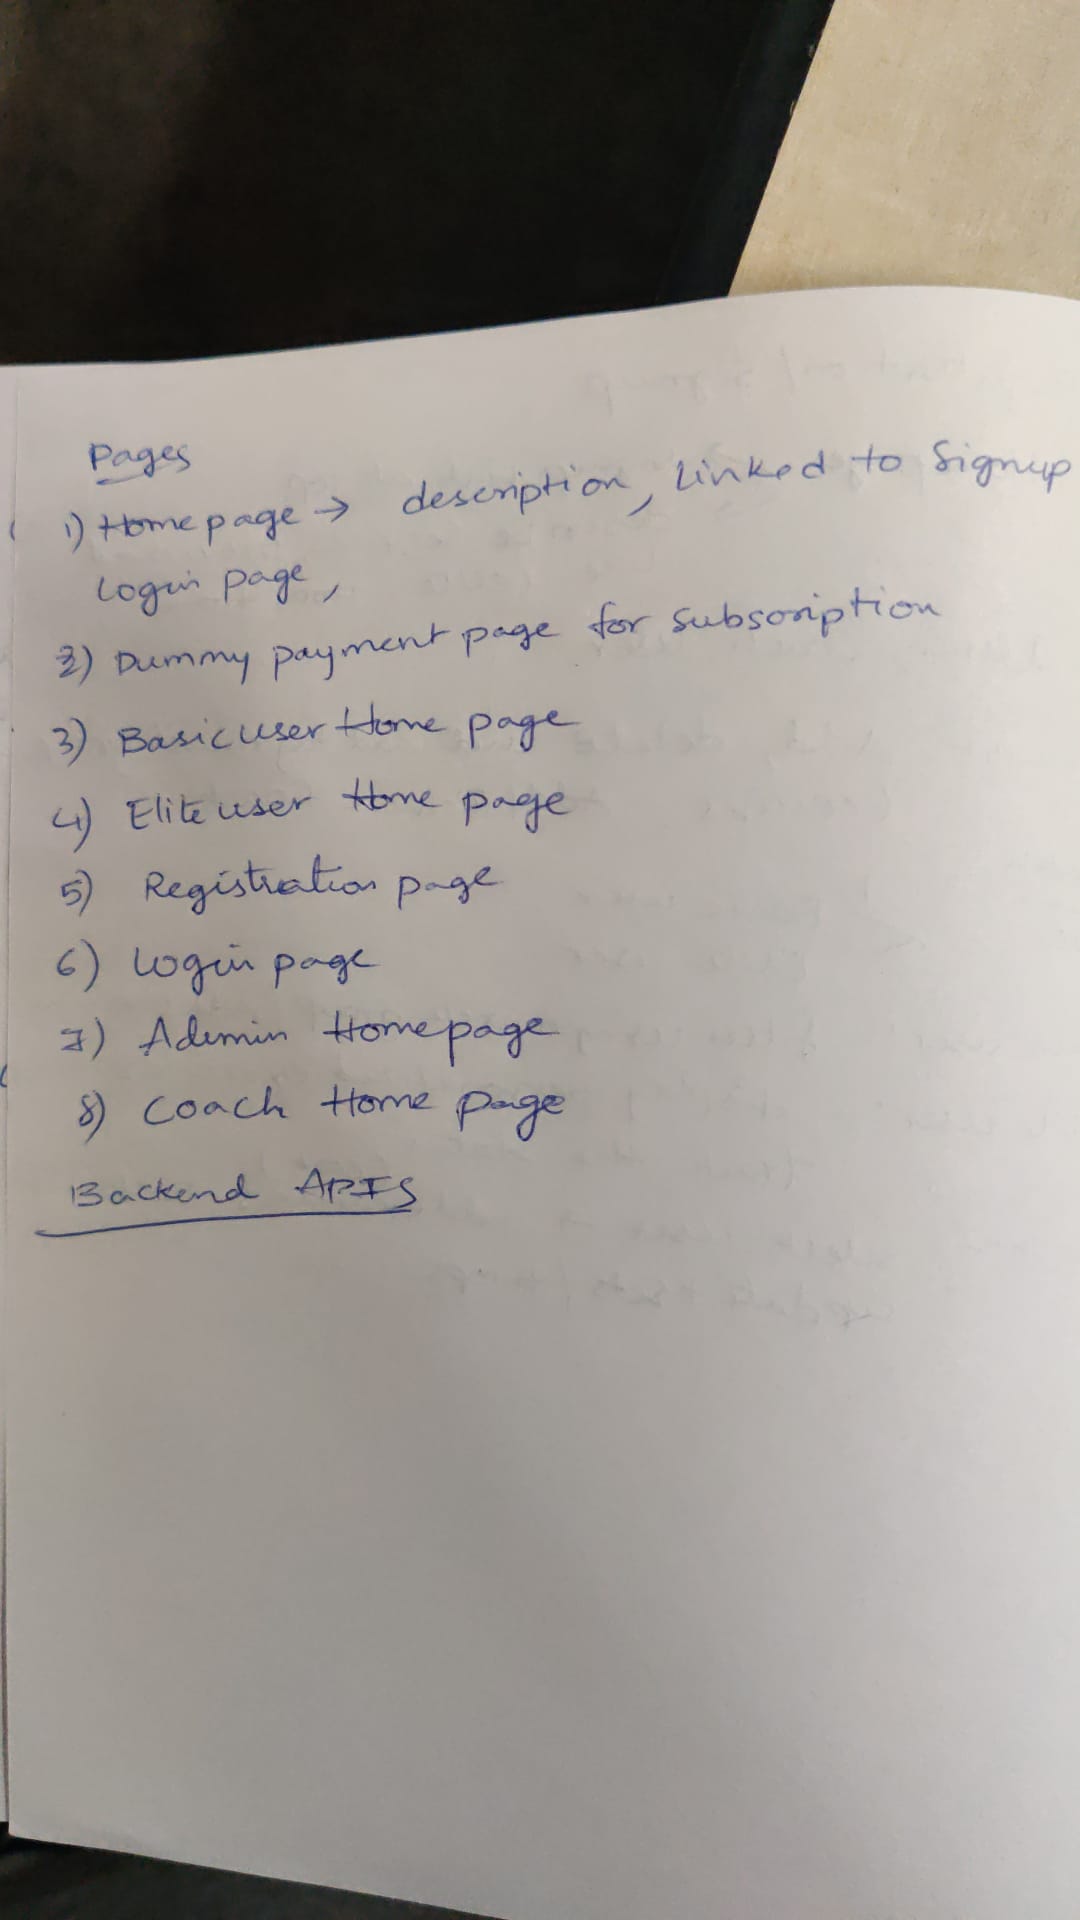 Pages
1) Homepage → description, Linked to Signup
Login page,
2) Dummy payment page for subscription
3) Basic user Home page
4) Elite user Home page
5) Registration page
6) Login page
7) Admin Homepage
8) Coach Home page
Backend APIS